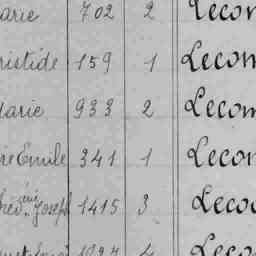 arie 702 2 Lecom
ristide 159 1 Lecom
arie 933 2 Lecom
re Emile 341 1 Lecom
Joseph 1415 3 Leco
4 Leco